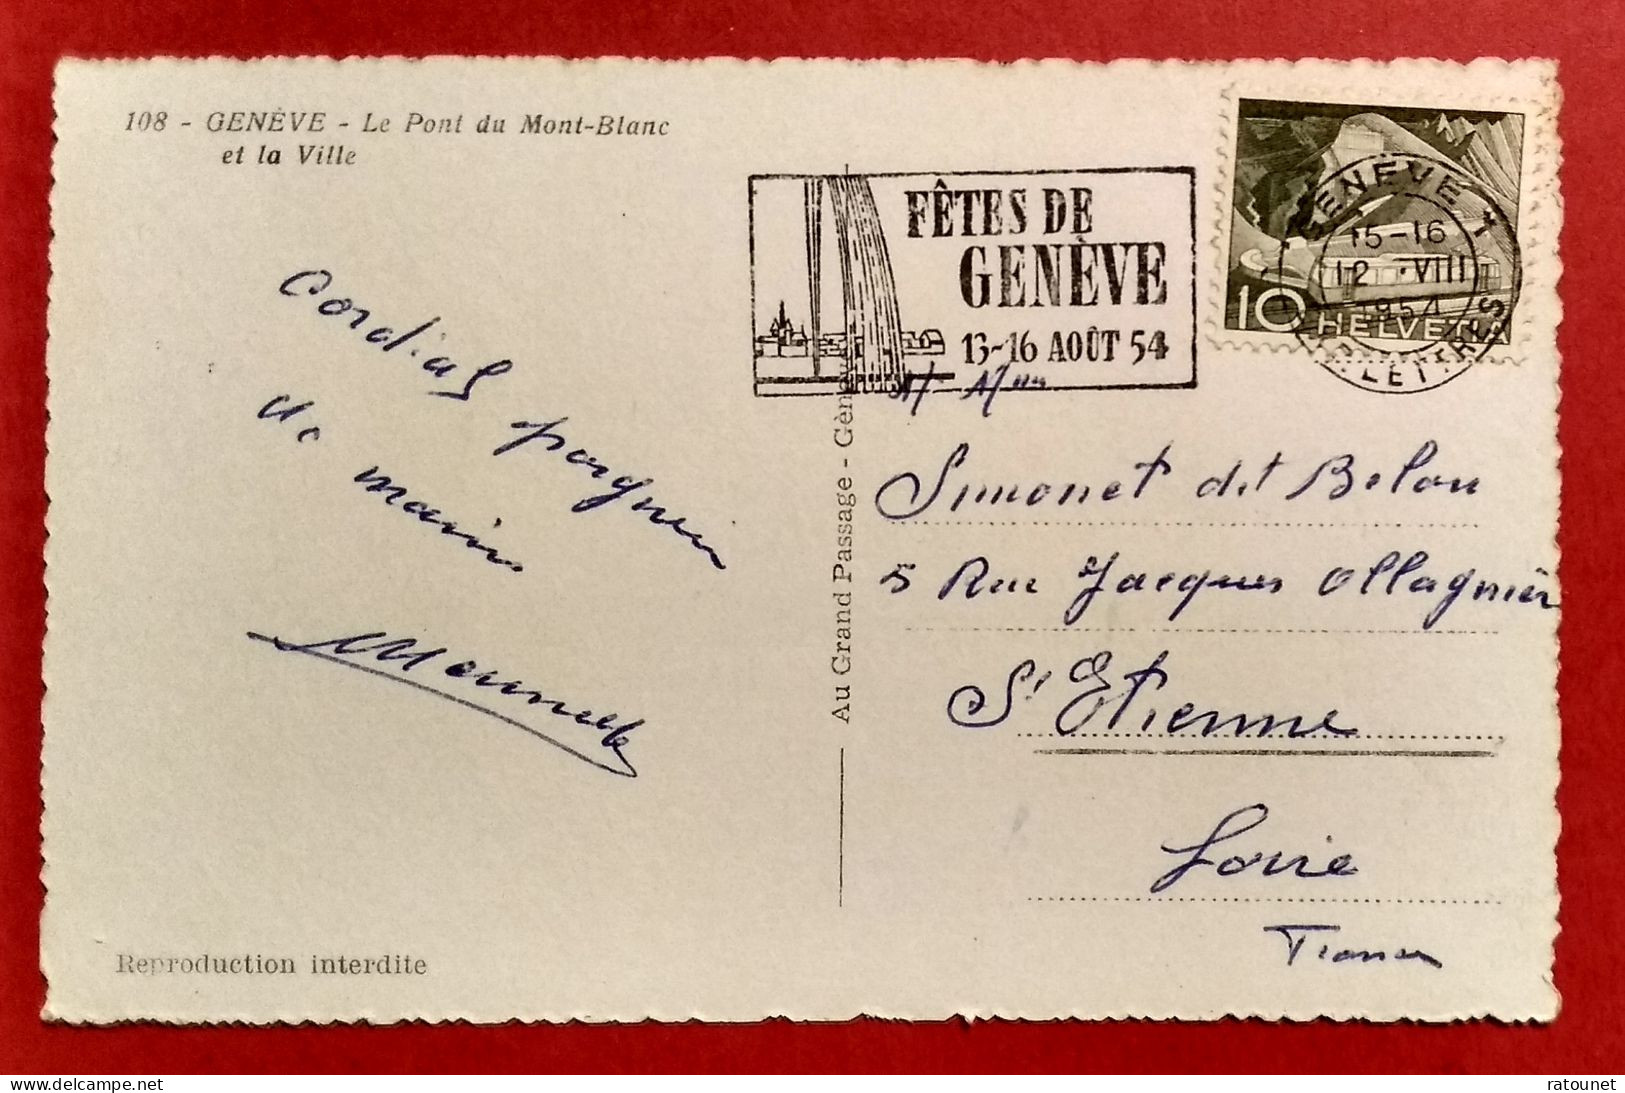 108 - GENÈVE - Le Pont du Mont-Blanc
et la Ville
FÊTES DE
GENÈVE
13-16 AOÛT 54
GENÈVE 1
15-16
12.VIII
1954
LETTRES
10 HELVETIA
Cordiale poignée
de main
Au Grand Passage - Genève
Simonet dit Belou
5 Rue Jacques Ollagnier
St Etienne
Loire
France
Reproduction interdite
delcampe.net
ratounet